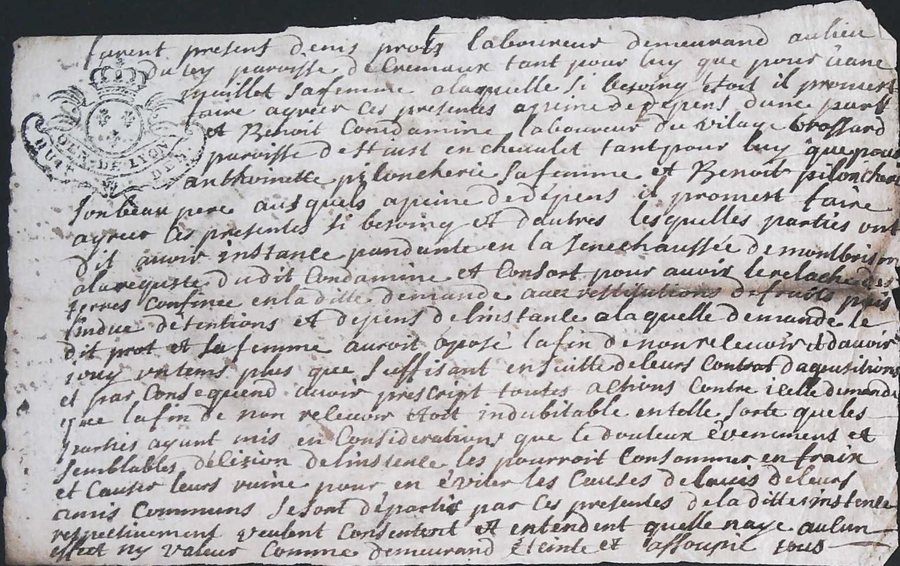 furent present denis prost laboureur demeurand aulieu
du luy paroisse de Cremaux tant pour luy que pour
maillet safemme alaquelle si besoing etoit il promest
faire agreer ces presentes apeine dedepens dune part
et Benoit Condamine laboureur du vilage brossard
GEN. DE LYON
paroisse de st just en chevalet tant pour luy que pour
anthoinette piloncherie safemme et Benoit piloncherie
son beau pere ausquels apeine dedepens il promest faire
agreer ces presentes si besoing et dautres lesquelles parties ont
dit avoir instance pandante en la senechaussée de montbrison
alarequiste dudit Condamine et Consort pour avoir le relache des
terres Confinée en la ditte demande avec restitutions defruits puis
lindue detentions et depens delinstance alaquelle demande le
dit prot et safemme auroit oposé lafin de nonrelevoir et davoir
jouy un tems plus que suffisant ensuitte deleurs Contrat daquisitions
et par Consequend avoir prescript toutes actions Contre icelle demande
que lafin de non relevoir etoit indubitable entelle sorte queles
parties ayant mis en Considerations que le douteux évenemens et
semblables délizion delinstence les pourroit Consommer en fraix
et Causer leurs ruine pour en éviter les Causes delavis deleurs
amis Communs sesont departis par ces presentes de laditte instence
respectivement veulent Consentest et entendent quelle naye aulcun
effect ny valeur comme demeurand éteinte et assoupie sous